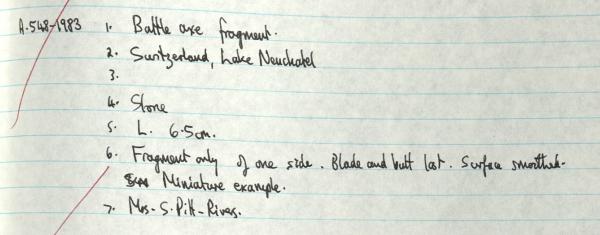 A.548-1983 1. Battle axe fragment.
2. Switzerland, Lake Neuchatel
3.
4. Stone
5. L. 6.5cm.
6. Fragment only of one side. Blade and butt lost. Surface smoothed.
Miniature example.
7. Mrs. S. Pitt-Rivers.